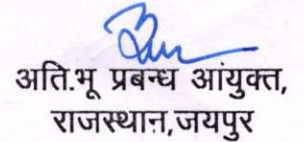 अति.भू प्रबन्ध आंयुक्त,
राजस्थान,जयपुर